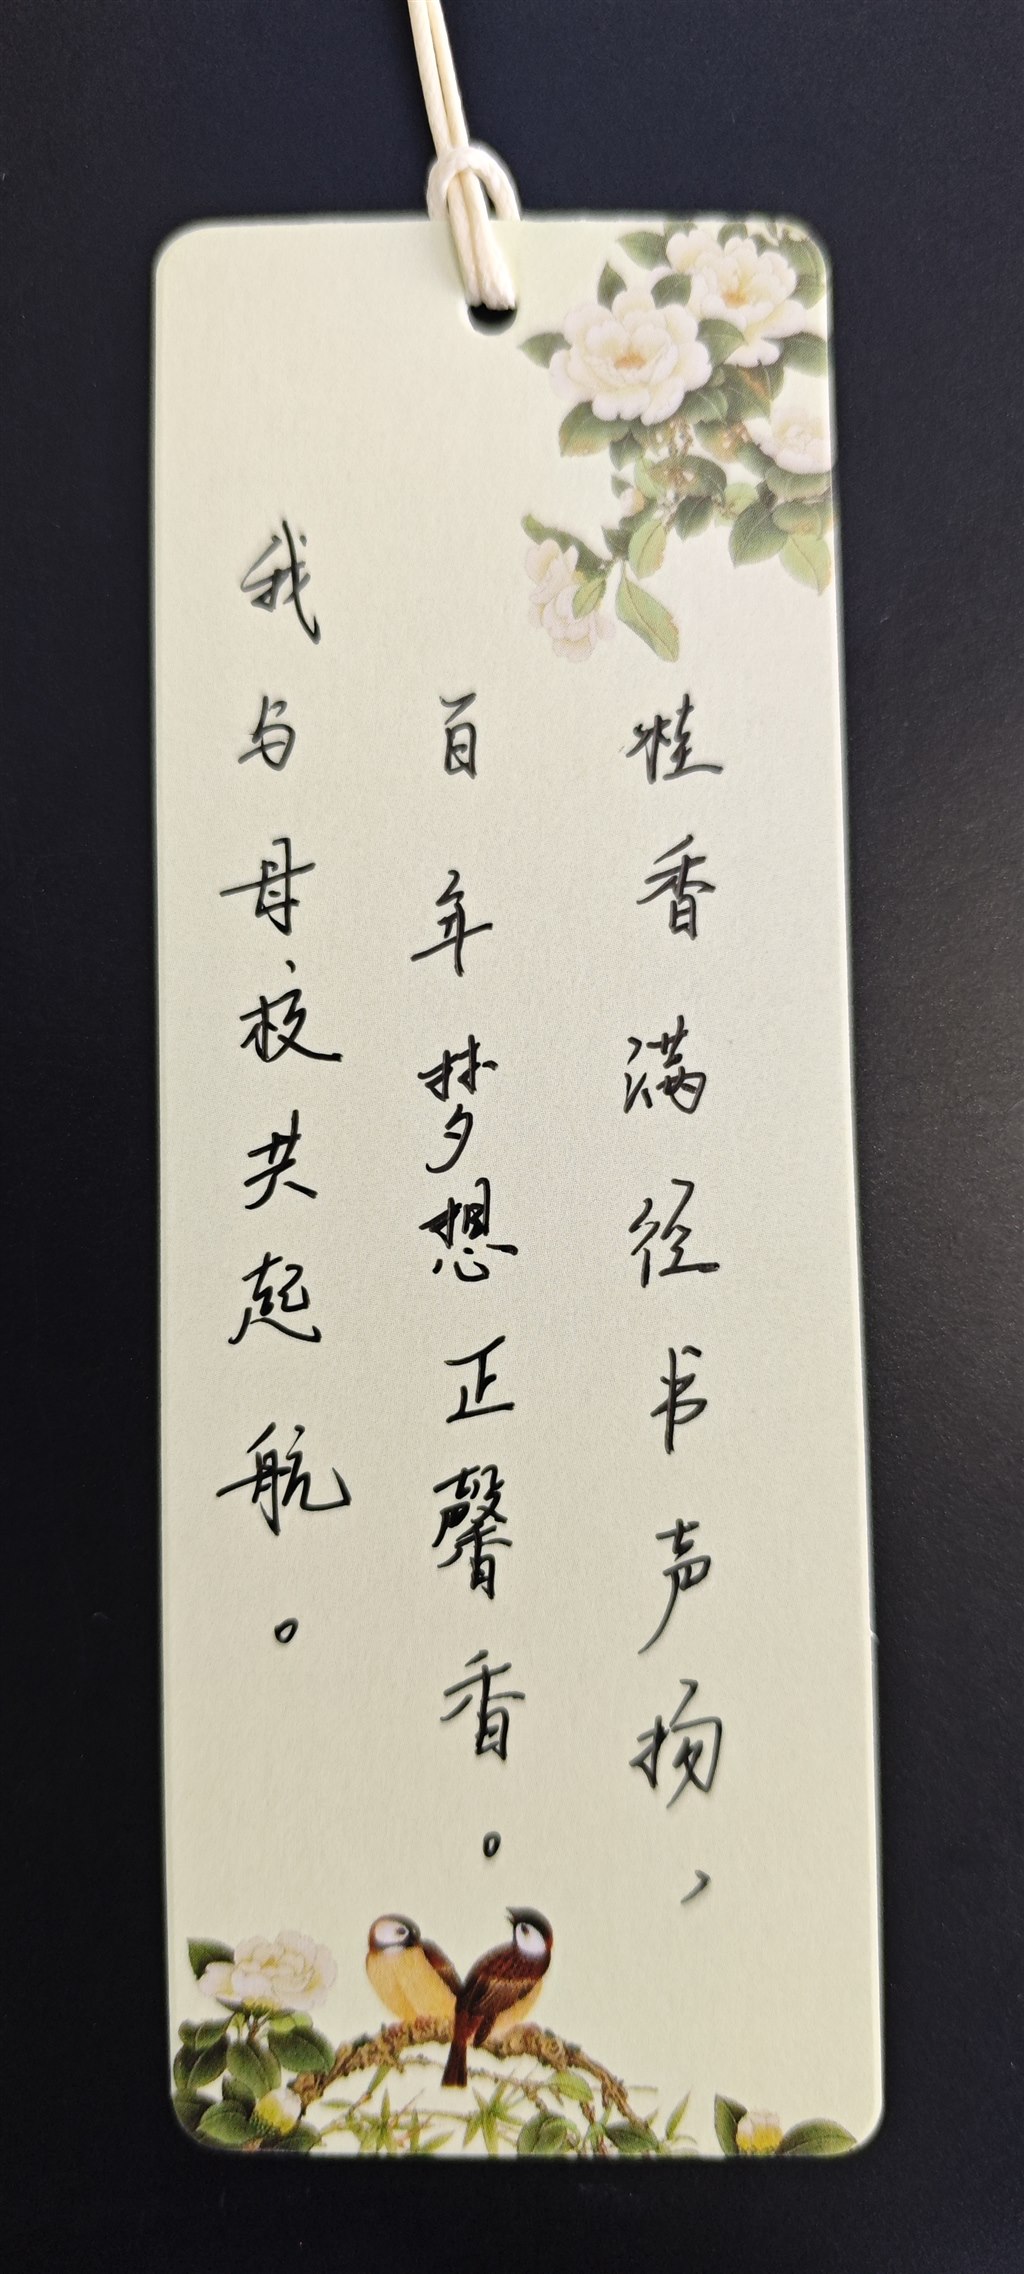 桂香满径书声扬，
百年梦想正馨香。
我与母校共起航。